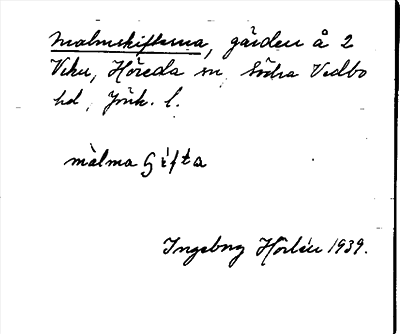 Malmskiftena, gården å 2
Viku, Höreda sn, Södra Vedbo
hd, Jönk. l.
màlma
Ingeborg Hörlén 1939.